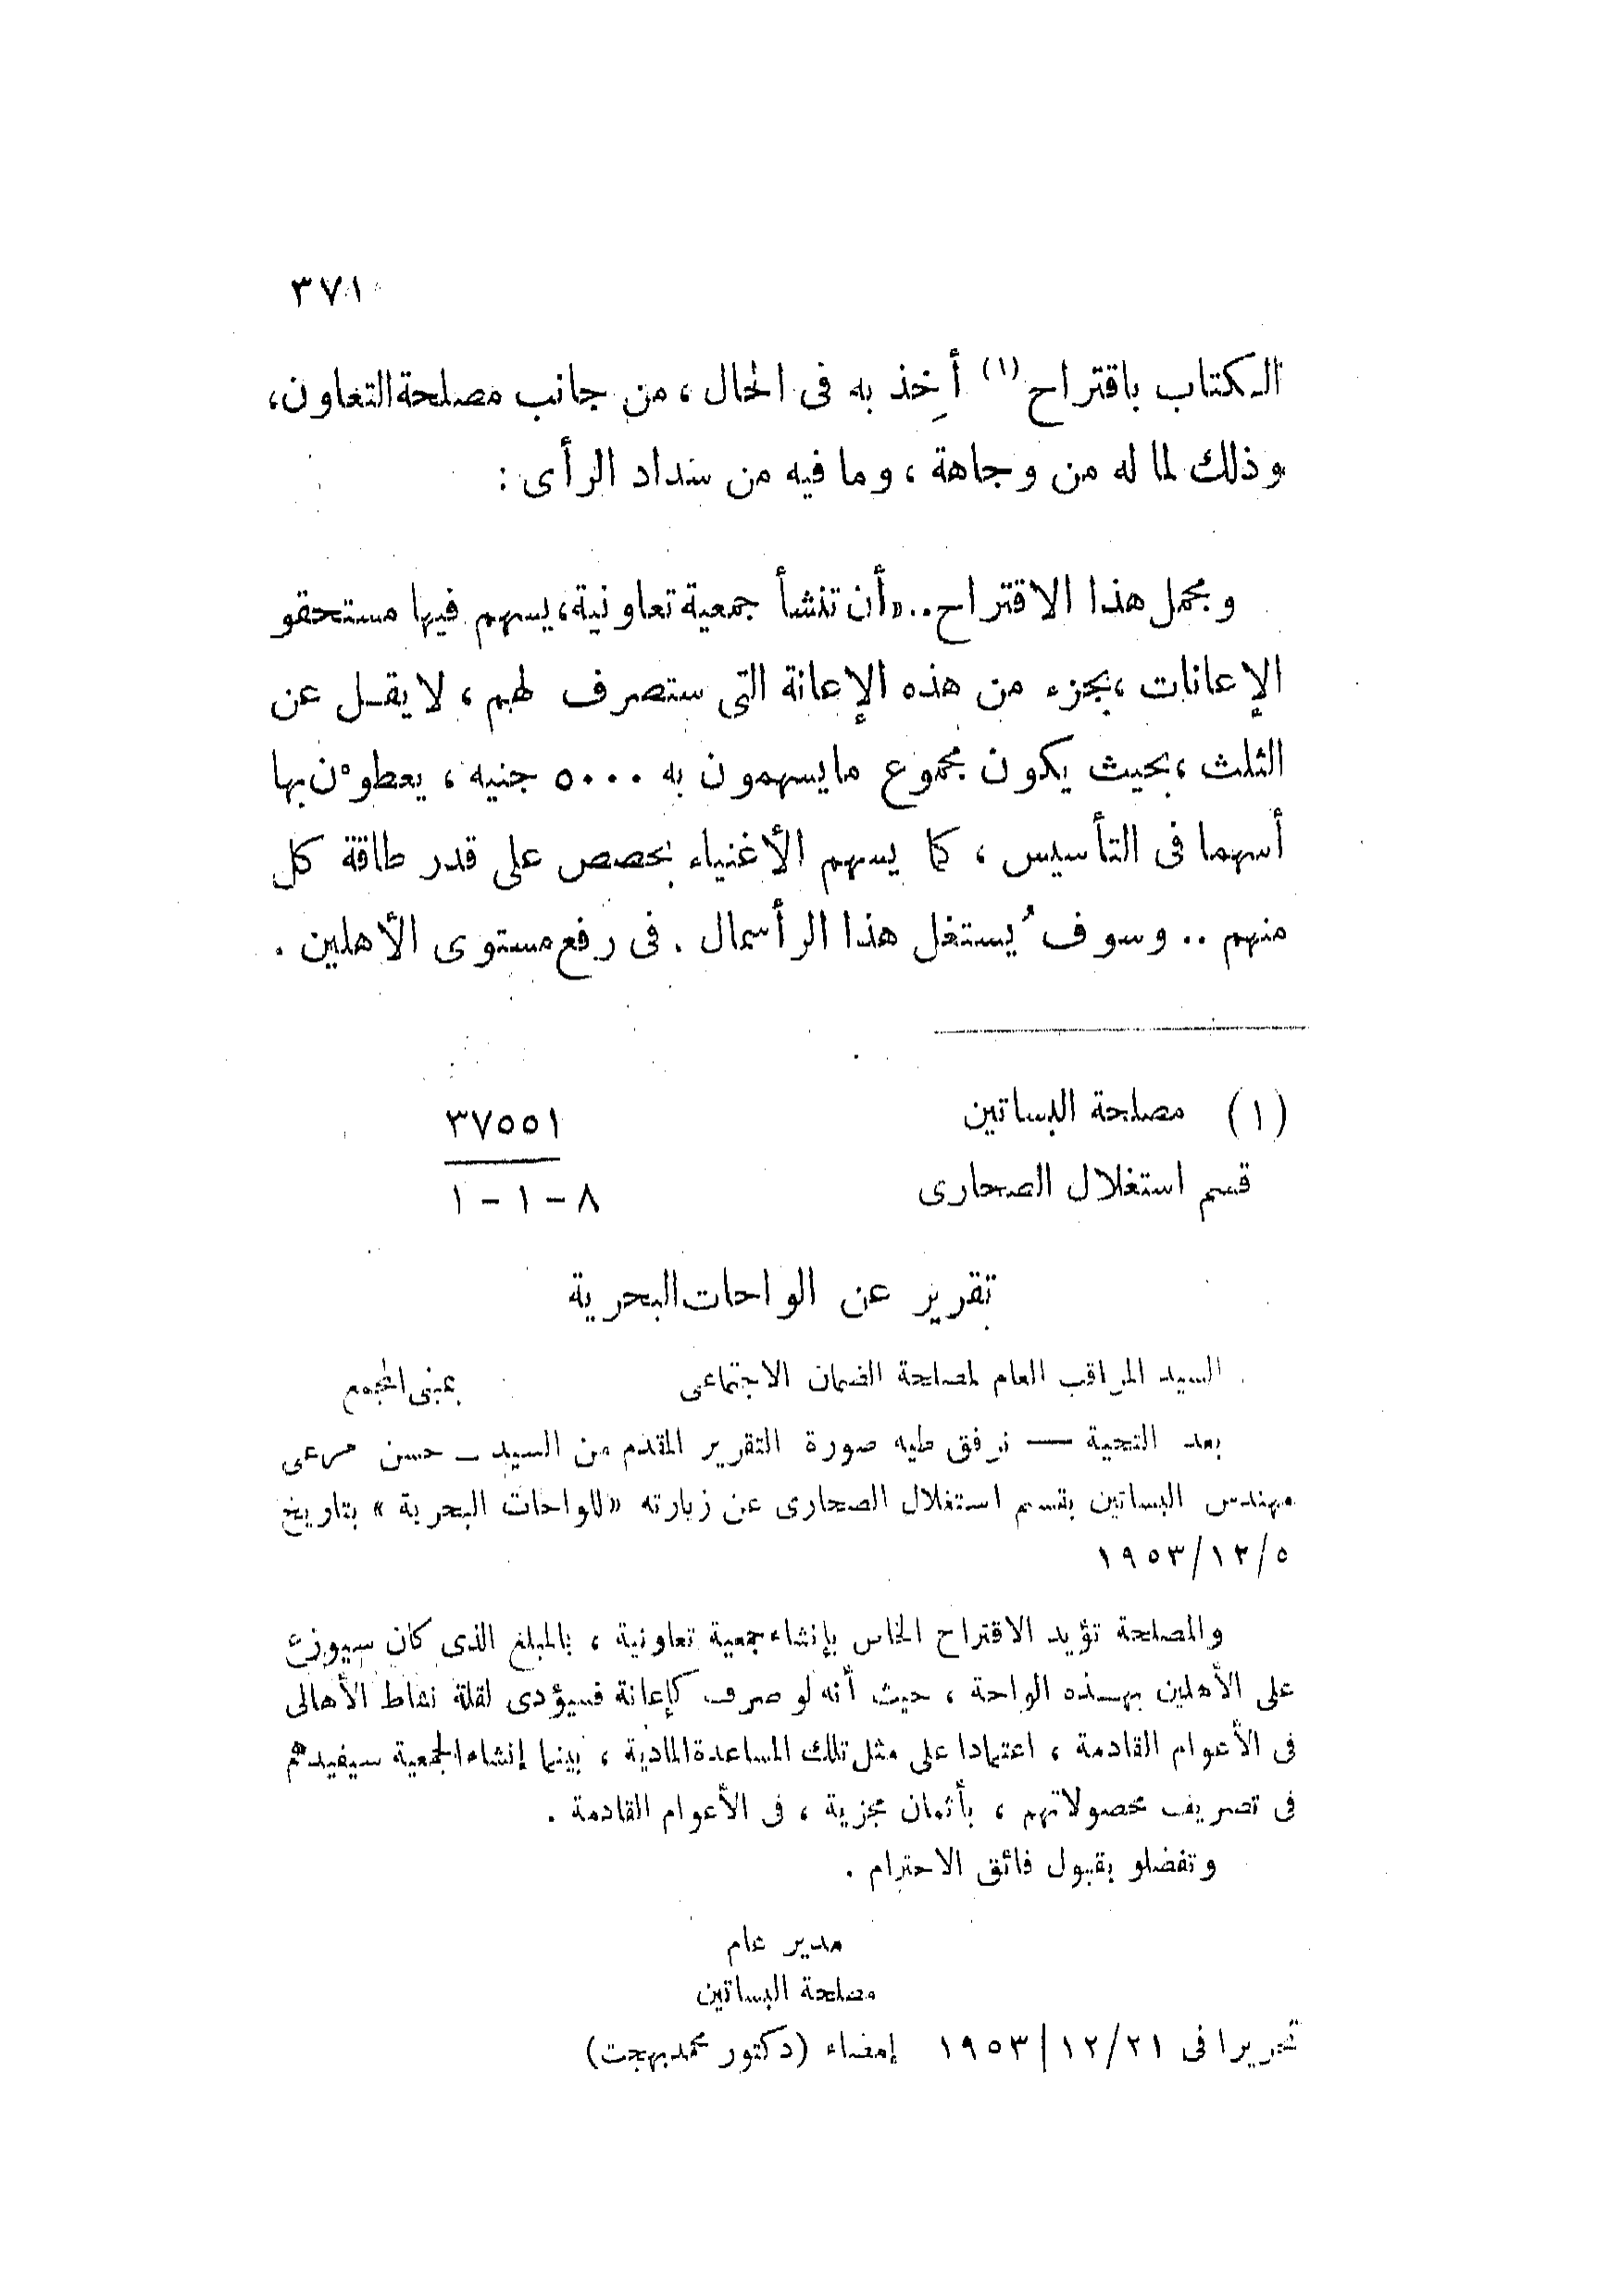 ٣٧١
الكتاب باقتراح (١) أخِذ به فى الحال ، من جانب مصلحة التعاون،
وذلك لما له من وجاهة ، وما فيه من سداد الرأى :
ومجمل هذا الاقتراح .. «أن تنشأ جمعية تعاونية، يسهم فيها مستحقو
الإعانات ، بجزء من هذه الإعانة التى ستصرف لهم ، لا يقل عن
الثلث ، بحيث يكون مجموع ما يسهمون به ٥٠٠٠ جنيه ، يعطوْن بها
أسهما فى التأسيس ، كما يسهم الأغنياء بحصص على قدر طاقة كل
منهم .. وسوف يُستغل هذا الرأسمال . فى رفع مستوى الأهلين .
(١) مصلحة البساتين ٣٧٥٥١
قسم استغلال الصحارى ٨ - ١ - ١
تقرير عن الواحات البحرية
السيد المراقب العام لمصلحة الضمان الاجتماعى بمبنى المجمع
بعد التحية — نرفق طيه صورة التقرير المقدم من السيد ـ حسن مرعى
مهندس البساتين بقسم استغلال الصحارى عن زيارته «للواحات البحرية» بتاريخ
٥/١٢/١٩٥٣
والمصلحة تؤيد الاقتراح الخاص بإنشاء جمعية تعاونية ، بالمبلغ الذى كان سيوزع
على الأهلين بهذه الواحة ، حيث أنه لو صرف كإعانة فسيؤدى لقلة نشاط الأهالى
فى الأعوام القادمة ، اعتمادا على مثل تلك المساعدة المادية ، بينما إنشاء الجمعية سيفيدهم
فى تصريف محصولاتهم ، بأثمان مجزية ، فى الأعوام القادمة .
وتفضلو بقبول فائق الاحترام .
مدير عام
مصلحة البساتين
تحريرا فى ٢١/١٢/١٩٥٣ إمضاء (دكتور محمد بهجت)